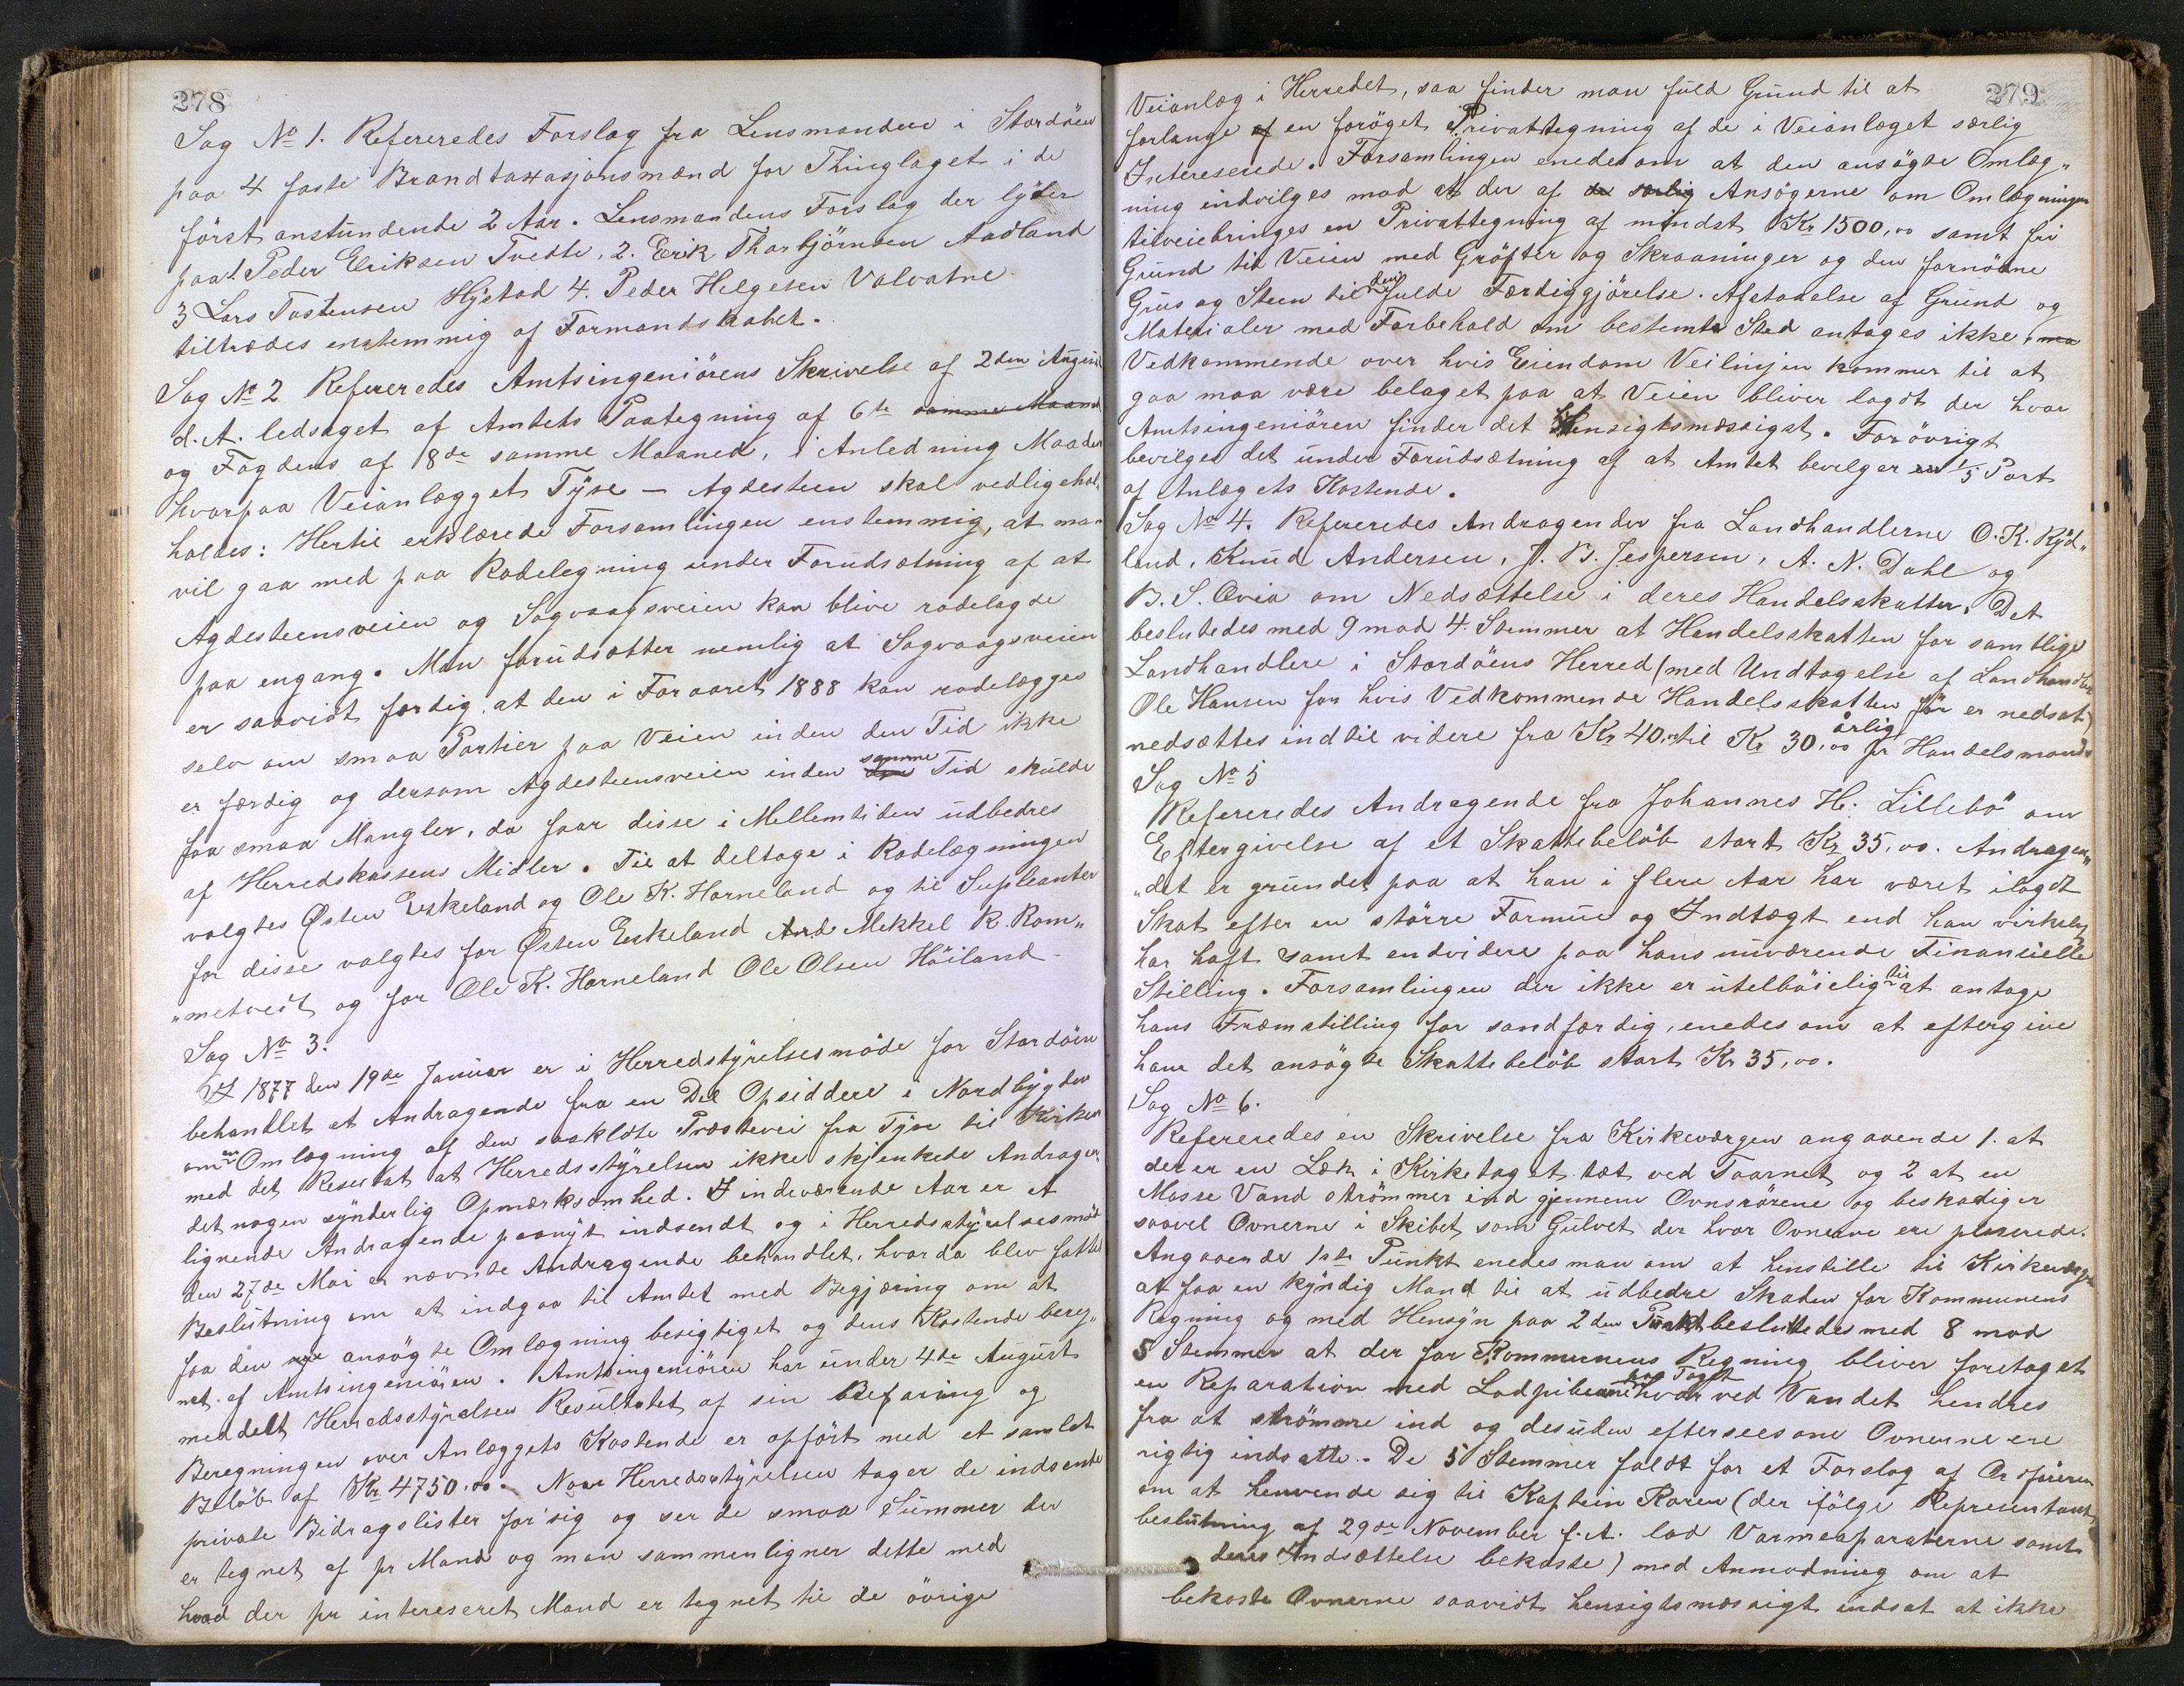 278
Sag No 1. Refereredes Forslag fra Lensmanden i Stordöen
paa 4 faste Brandtaxasjonsmænd for Thinglaget i de
först anstundende 2 Aar. Lensmandens Forslag der lyder
paa 1. Peder Eriksen Tvedte, 2. Erik Thorbjörnsen Aadland
3 Lars Tostensen Hystad 4. Peder Helgesen Valvatne
tiltrædes enstemmig af Formandskabet.
Sag No 2 Refereredes Amtsingeniörens Skrivelse af 2den August
d. A. ledsaget af Amtets Paategning af 6te samme Maaned
og Fogdens af 18de samme Maaned, i Anledning Maaden
hvorpaa Veianlægget Tyse – Agdesteen skal vedligehol-
holdes: Hertil erklærede Forsamlingen enstemmig, at man
vil gaa med paa Rodelegning under Forudsætning af at
Agdesteensveien og Sagvaagsveien kan blive rodelagde
paa engang. Man forudsætter nemlig at Sagvaagsveien
er saavidt færdig, at den i Foraaret 1888 kan rodelægges
selv om smaa Partier paa Veien inden den Tid ikke
er færdig og dersom Agdesteensveien inden den samme Tid skulde
faa smaa Mangler, da faar disse i Mellemtiden udbedres
af Herredskassens Midler. Til at deltage i Rodelægningen
valgtes Østen Eskeland og Ole K. Horneland og til Supleanter
for disse valgtes for Østen Eskeland And Mikkel R. Rom„
„metvedt og for Ole K. Horneland Ole Olsen Höiland
Sag No 3.
I 1877 den 19de Januar er i Herredstyrelsesmöde for Stordöen
behandlet et Andragende fra en Del Opsiddere i Nordbygden
om en Omlægning af den saakldte Præstevei fra Tyse til Kirken
med det Resultat at Herredsstyrelsen ikke skjenkede Andragen„
det nogen synderlig Opmærksomhed. I indeværende Aar er et
lignende Andragende paanyt indsendt og i Herredsstyrelsesmöd
den 27de Mai er nævnte Andragende behandlet, hvor da blev fattet
Beslutning om at indgaa til Amtet med Begjæring om at
faa den nye ansögte Omlægning besigtiget og dens Kostende bereg„
net af Amtsingeniören. Amtsingeniören har under 4de August
meddelt Herredsstyrelsen Resultatet af sin Befaring og
Beregningen over Anlæggets Kostende er opfört med et samlet
Belöb af Kr 4750,00. Naar Herredsstyrelsen tager de indsendte
private Bidragslister for sig og ser de smaa Summer der
er tegnet af pr Mand og man sammenligner dette med
hvad der pr intereseret Mand er tegnet til de övrige
279
Veianlæg i Herredet, saa finder man fuld Grund til at
forlange af en foröget Privattegning af de i Veianlæget særlig
Intereserede. Forsamlingen enedes om at den ansögte Omlæg„
ning indvilges mod at der af de særlig Ansögerne om Omlægningen
tilveiebringes en Privattegning af mindst Kr 1500,00 samt fri
Grund til Veien med Gröfter og Skraaninger og den fornödne
Grus og Steen til den fulde Færdiggjörelse. Afstaaelse af Grund og
Materialer med Forbehold om bestemte Sted antages ikke, men
Vedkommende over hvis Eiendom Veilinjen kommer til at
gaa maa være belaget paa at Veien bliver lagdt der hvor
Amtsingeniören finder det Hensigtsmæssigst. Forövrigt
bevilges det under Forudsætning af at Amtet bevilger en 1/5 Part
af Anlægets Kostende.
Sag No 4. Refereredes Andragender fra Landhandlerne O. K. Ryd„
land, Knud Andersen, J. B. Jespersen, A. N. Dahl og
B. S. Qvia om Nedsættelse i deres Handelsskatter. Det
beslutedes med 9 mod 4 Stemmer at Handelsskatten for samtlige
Landhandlere i Stordöens Herred (med Undtagelse af Landhandler
Ole Hansen for hvis Vedkommende Handelsskatten för er nedsat)
nedsættes indtil videre fra Kr 40,00 til Kr 30,00 årlig pr Handelsmand.
Sag No 5
Refereredes Andragende fra Johannes H. Lillebö om
Eftergivelse af et Skattebelöb stort Kr 35,00. Andragen„
„det er grundet paa at han i flere Aar har været ilagdt
Skat efter en större Formue og Indtægt end han virkelig
har haft samt endvidere paa hans nuværende Financielle
Stilling. Forsamlingen der ikke er utelböielig til at antage
hans Fræmstilling for sandfærdig, enedes om at eftergive
ham det ansögte Skattebelöb stort Kr 35,00.
Sag No 6.
Refereredes en Skrivelse fra Kirkeværgen angaaende 1. at
der er en Læk i Kirketaget tæt ved Taarnet og 2 at en
Masse Vand strömmer ind gjennem Ovnsrörene og beskadiger
saavel Ovnerne i Skibet som Gulvet der hvor Ovnerne ere plaserede.
Angaaende 1ste Punkt enedes man om at henstille til Kirkeværgen
at faa en kyndig Mand til at udbedre Skaden for Kommunens
Regning og med Hensyn paa 2den Punkt beslutedes med 8 mod
5 Stemmer at der for Kommunens Regning bliver foretaget
en Reparation med Lodpiberne paa Taget hvor ved Vandet hendres
fra at strömme ind og desuden eftersees om Ovnerne ere
rigtig indsatte. De 5 Stemmer faldt for et Forslag af Ordföreren
om at henvende sig til Kaptein Roren (der ifölge Representant
beslutning af 29de November f. A. lod Varmeaparaterne samt
deres Indsættelse bekoste) med Anmodning om at
bekoste Ovnerne saavidt hensigtsmæssigt indsat at ikke